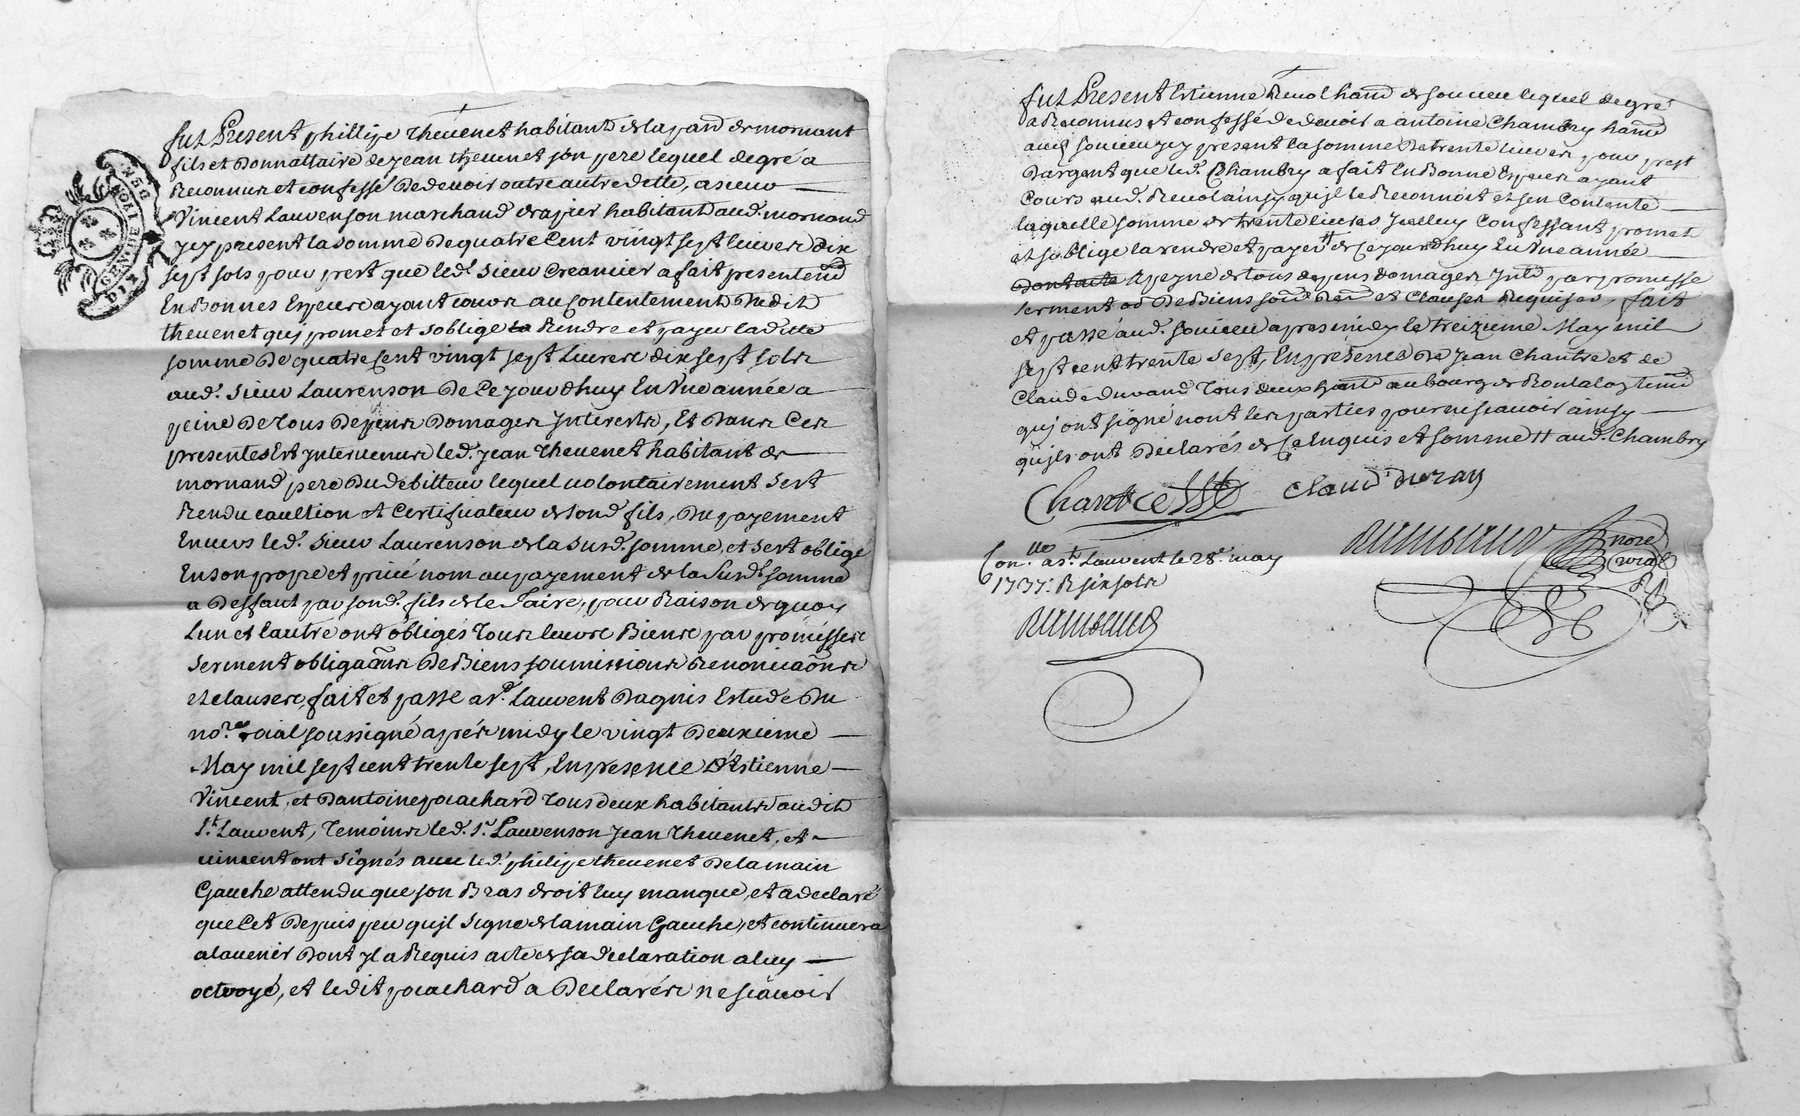 GEN DE LION
DIX DEN
fut Present phillipe thevenet habitant de la parr. de mornant
fils et donnattaire de jean thevenet son pere lequel de gré a
Reconnus et confessé de devoir outre autre dette, a sieur
Vincent Laurenson marchand drapier habitant aud. mornand
jcy present la somme de quatre Cent vingt sept livres dix
sept sols pour prest que led. sieur Creancier a fait presentemt
En Bonnes Especes ayant cours au Contentement du dit
thevenet qui promet et s'oblige la Rendre et payer la ditte
somme de quatre Cent vingt sept Livres dix sept sols
aud. sieur Laurenson de Ce jourdhuy En Une année a
peine de tous depens domages Interests, Et dans Ces
presentes Est Intervenus led. jean thevenet habitant de
mornand pere du debitteur lequel volontairement s'est
Rendu caultion et Certificateur de sond. fils, du payement
Envers led. sieur Laurenson de la susd. somme, et s'est obligé
En son propre et privé nom au payement de la susd. somme
a deffaut par sond. fils de le Faire, pour Raison de quoy
Lun et Lautre ont obligés tous leurs Biens par promesses
serment obligaons de Biens soumissions Renonciaons
et clauses, fait et passé a st. Laurent dagnis Estude du
nore. roial soussigné aprés midy le vingt deuxieme
May mil sept cent trente sept, En presence d'Estienne
Vincent, et dantoine pacachard tous deux habitants audit
St. Laurent, temoins led. sr. Laurenson jean thevenet, et
vincent ont signés avec led. philipe thevenet de la main
Gauche attendu que son Bras droit luy manque, et a declaré
que Cet depuis peu qujl signe de la main Gauche, et continuera
a lavenir dont jl a Requis acte de sa declaration a luy
octroyé, et ledit pacachard a declarés ne scavoir
fut Present Estienne Revol hant. de soucieu lequel de gré
a Reconnus et confessé de devoir a antoine Chambry hant.
aud. soucieu jcy present la somme de trente livres pour prest
dargent que led. Chambry a fait En Bonne Especes ayant
Cours aud. Revol ainsy qujl le Reconnoit et sen Contente
laquelle somme de trente livres jcelluy Confessant promet
et s'oblige la rendre et payer de Ce jourdhuy En Une année
a peyne de tous depens domages Jntts. par promesse
serment ob. de Biens soum. Ren. et Clauses Requises, fait
et passé aud. soucieu apres midy le treizieme May mil
sept cent trente sept, En presence de jean Chantre et de
Claude durand tous deux hants au bourg de Rontalon temns
quj ont signé non les parties pour ne scavoir ainsy
qujls ont declarés de Ce Enquis et sommé aud. Chambry
Chantre
Claud duran
Conlle. a st. Laurent le 28e. may
1737: R six sols
nore
roial